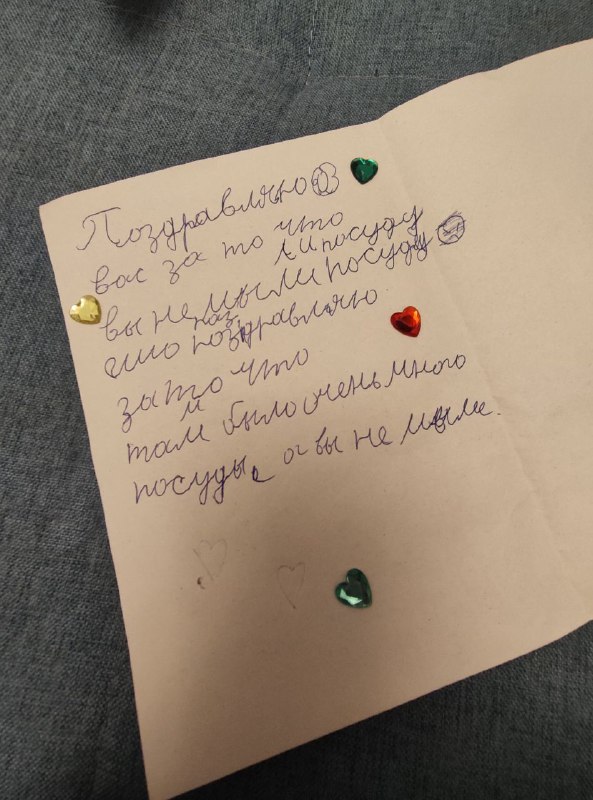 Поздравляю
вас за то что
ли посуду
вы не мыли посуду
поздравляю
за то что
там было очень много
посуды, а вы не мыли.